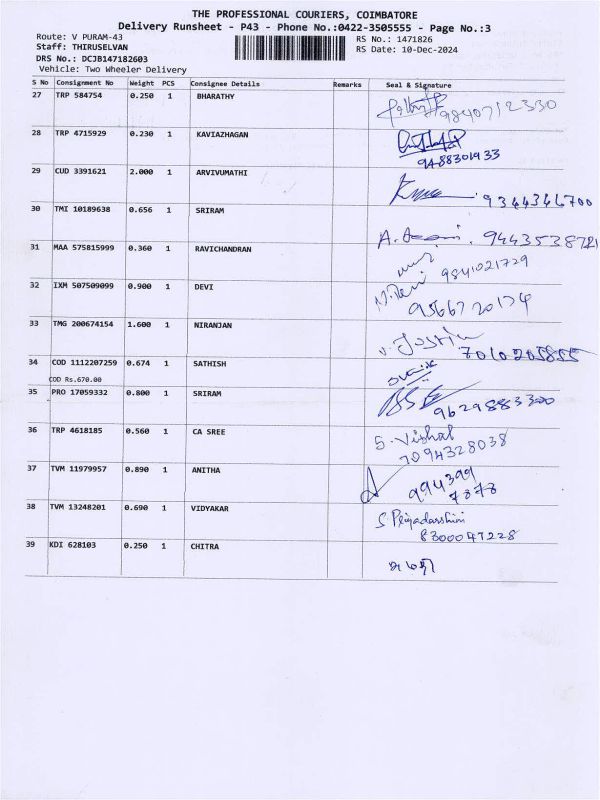 THE PROFESSIONAL COURIERS, COIMBATORE
Delivery Runsheet - P43 - Phone No.:0422-3505555 - Page No.:3
Route: V PURAM-43
RS No.: 1471826
Staff: THIRUSELVAN
RS Date: 10-Dec-2024
DRS No.: DCJB147182603
Vehicle: Two Wheeler Delivery
S No Consignment No Weight PCS Consignee Details Remarks Seal & Signature
27 TRP 584754 0.250 1 BHARATHY
9840712330
28 TRP 4715929 0.230 1 KAVIAZHAGAN
9488301933
29 CUD 3391621 2.000 1 ARVIVUMATHI
9344346700
30 TMI 10189638 0.656 1 SRIRAM
A. 9443538721
31 MAA 575815999 0.360 1 RAVICHANDRAN
9841021729
32 IXM 507509099 0.900 1 DEVI
N. Devi
9566720174
33 TMG 200674154 1.600 1 NIRANJAN
v. Jostin
7010205855
34 COD 1112207259 0.674 1 SATHISH
COD Rs.670.00
35 PRO 17059332 0.800 1 SRIRAM
9629883300
36 TRP 4618185 0.560 1 CA SREE
S. Vishal
7094328038
37 TVM 11979957 0.890 1 ANITHA
994399
7878
38 TVM 13248201 0.690 1 VIDYAKAR
S Priyadarshini
8300047228
39 KDI 628103 0.250 1 CHITRA